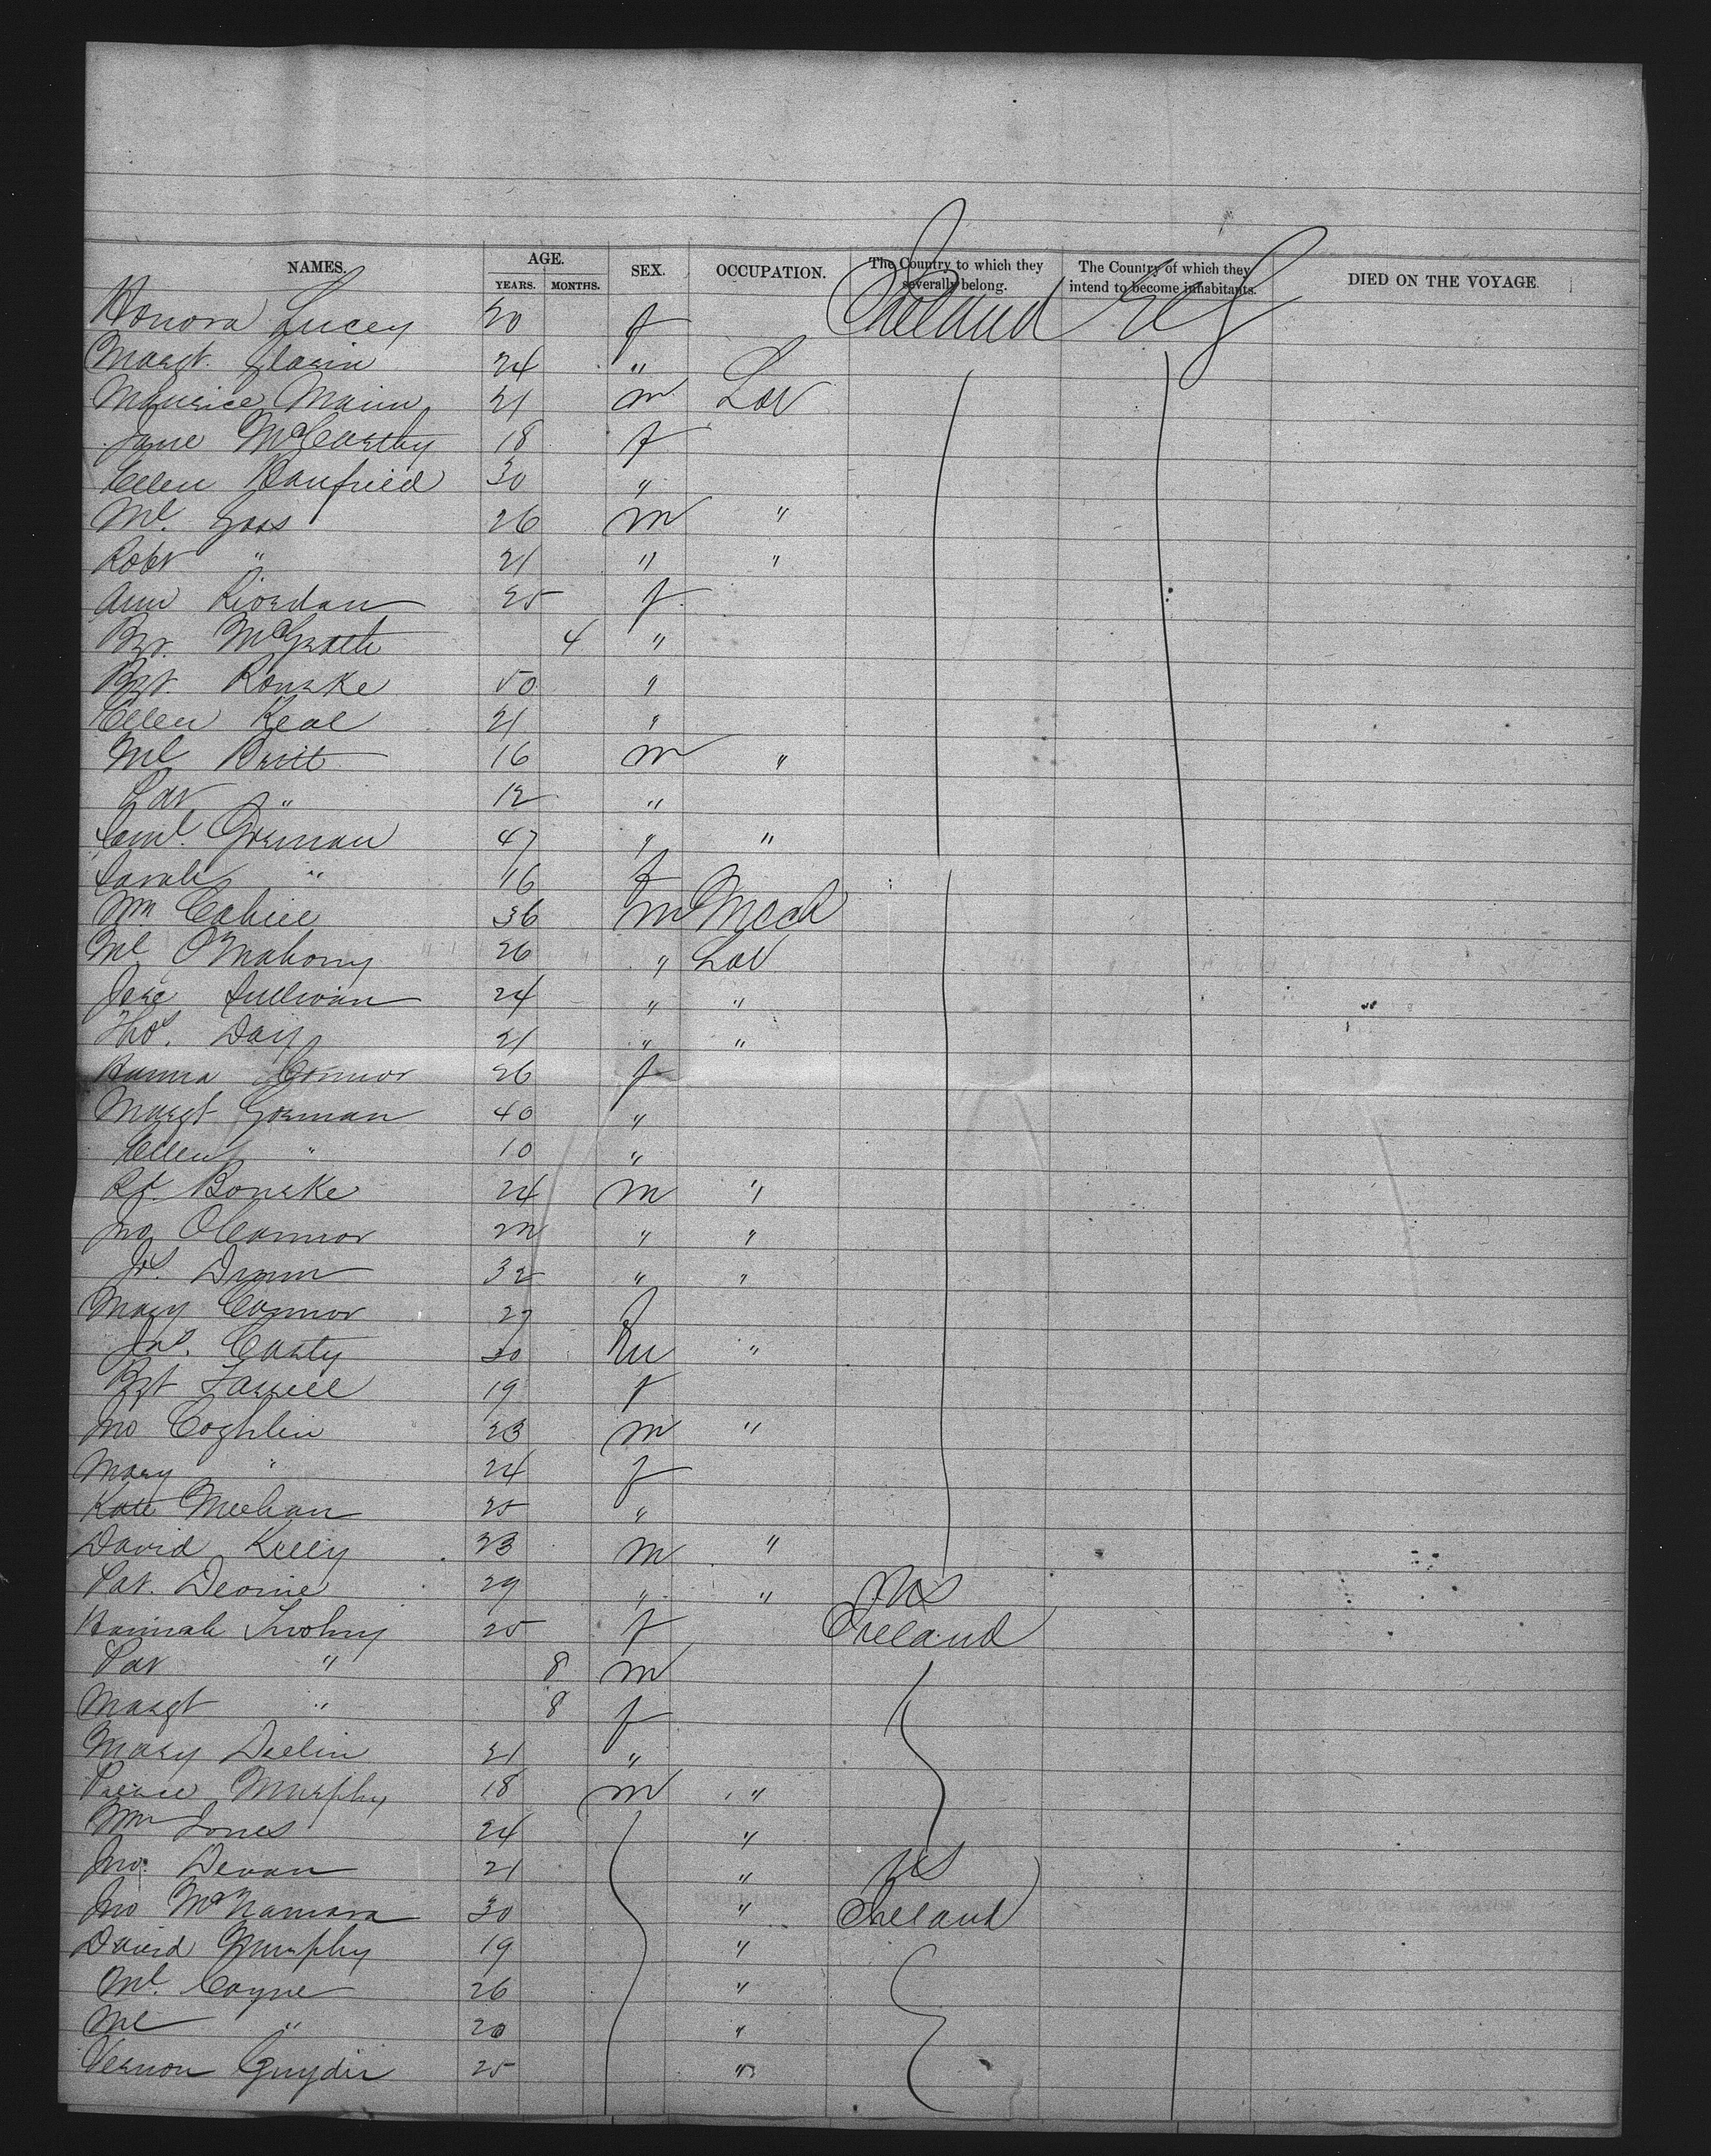 NAMES. AGE. YEARS. MONTHS. SEX. OCCUPATION. The Country to which they severally belong. The Country of which they intend to become inhabitants. DIED ON THE VOYAGE
Honora Lucey 20 f Ireland US
Margt. 24 "
Maurice 21 m Lab
Jane McCarthy 18 f
Ellen 30 "
Ml. 26 m "
Robt " 21 " "
Ann Riordan 25 f
Bgt. McGrath 4 "
Bgt. Rourke 50 "
Ellen Keal 21 "
Ml Britt 16 m "
Pat " 12 "
Saml. Gorman 47 " "
Sarah " 16 f
Wm Cahill 36 m Mech
Ml O'Mahony 26 " Lab
Jere Sullivan 24 " "
Thos. Day 21 " "
Hanna Connor 26 f
Margt Gorman 40 "
Ellen " 10 "
Rd. Bourke 24 m "
Jno OConnor 22 " "
Js. 32 " "
Mary Connor 27 f
Jas. Carty 30 m "
Bgt Farrell 19 f
Jno Coghlin 23 m "
Mary " 24 f
Kate Meehan 25 "
David Kelly 23 m "
Pat. Devine 29 " " US
Hannah Twohy 25 f Ireland
Pat " 8 m
Margt " 8 f
Mary Devlin 21 "
Pierce Murphy 18 m "
Wm Jones 24 "
Jno. Devan 21 " US
Jno McNamara 30 " Ireland
David Murphy 19 "
Ml. Coyne 26 "
Ml " 20 "
Vernon 25 "